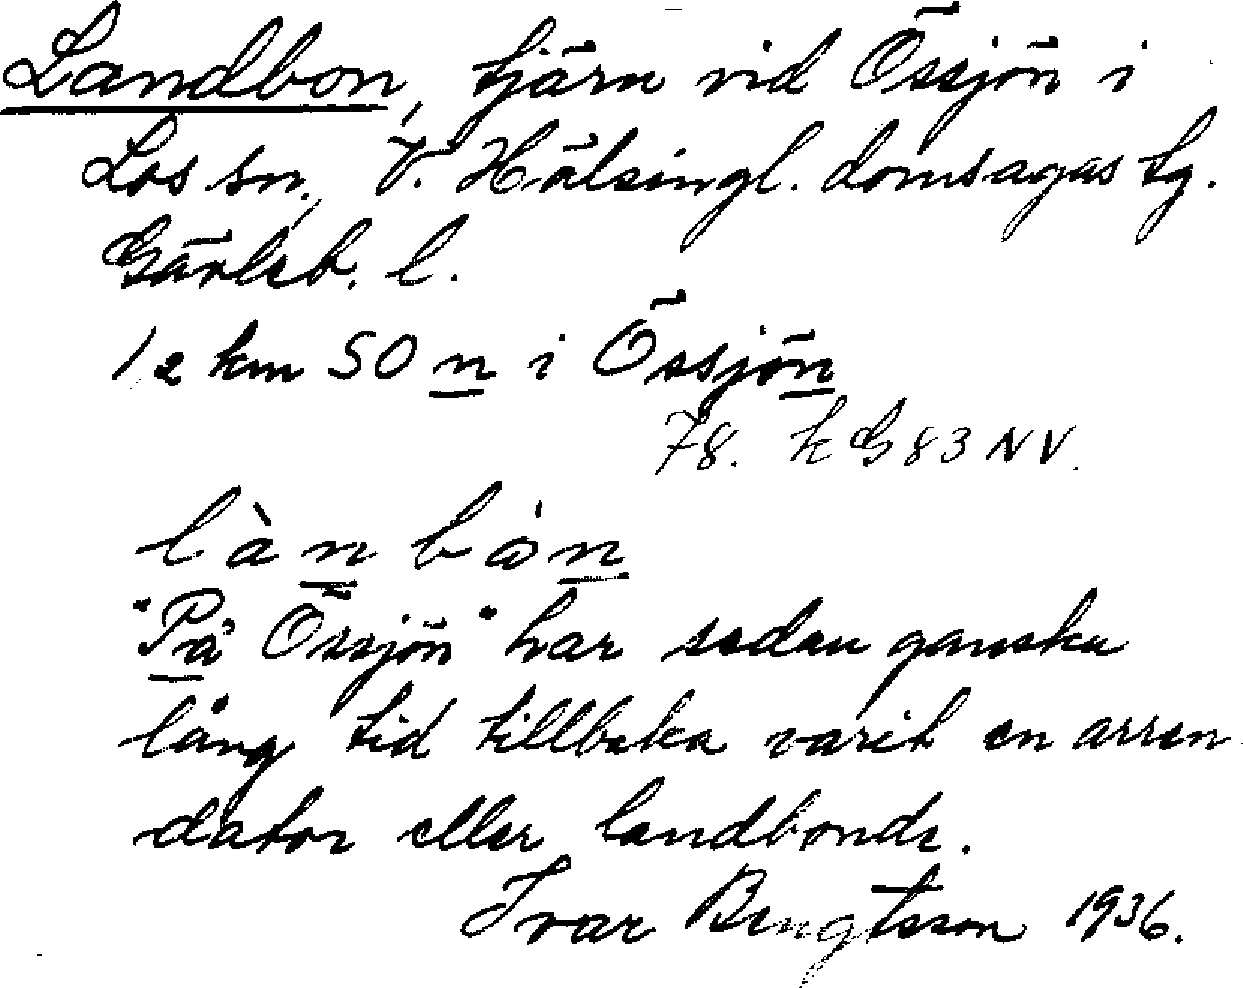 Landbon, tjärn vid Össjön i
Los sn., V. Hälsingl. domsagas tg.
Gävleb. l.
1,2 km SO n i Össjön
78. kG83NV.
làn bòn
"På Össjön" har sedan ganska
lång tid tillbaka varit en arren
dator eller landbonde.
Ivar Bengtsson 1936.